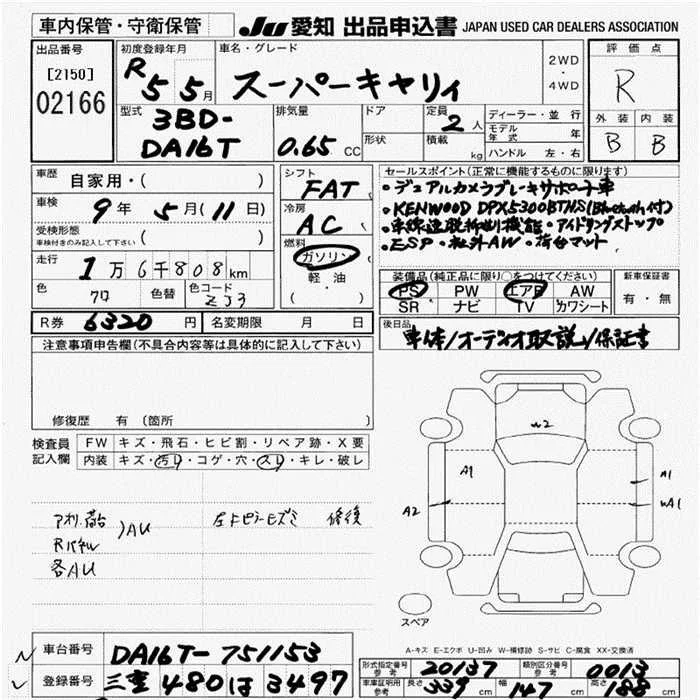 車内保管・守衛保管
JU 愛知 出品申込書 JAPAN USED CAR DEALERS ASSOCIATION
出品番号
[2150]
02166
初度登録年月
R5 5月
車名・グレード
スーパーキャリィ
2WD
・
4WD
評価点
R
外装 内装
B B
型式
3BD-
DA16T
排気量
0.65 CC
ドア
形状
定員
2人
積載
kg
ディーラー・並行
モデル年式 年
ハンドル 左・右
車歴
自家用・( )
車検
9年 5月(11日)
受検形態
車検付きのみ記入して下さい ( )
走行
1万6千808km
色
クロ
色替
色コード
ZJ3
シフト
FAT
冷房
AC
燃料
ガソリン
軽・油
( )
セールスポイント(正常に機能するものに限ります)
・デュアルカメラブレーキサポート車
・KENWOOD DPX5300BTHS(Bluetooth付)
・車線逸脱抑制機能・アイドリングストップ
・ESP・社外AW・荷台マット
装備品(純正品に限り○をつけてください)
PS PW エアB AW
SR ナビ TV カワシート
新車保証書
有・無
R券 6320円
名変期限 月 日
後日品
車体/オーディオ取説/保証書
注意事項申告欄(不具合内容等は具体的に記入して下さい)
修復歴 有(箇所 )
検査員記入欄
FW キズ・飛石・ヒビ割・リペア跡・X要
内装 キズ・汚れ・コゲ・穴・スレ・キレ・破レ
アオリ、荷台
Rパネル
)AU
各AU
左Fピラーヒズミ 修後
W2
A1
A1
A2
WA1
スペア
A-キズ E-エクボ U-凹み W-補修跡 S-サビ C-腐食 XX-交換済
車台番号
DA16T-751153
登録番号
三重 480 は 3497
形式指定番号
参考
20137
類別区分番号
参考
0013
車庫証明用
参考
長さ 339cm 幅 147cm 高さ 188cm